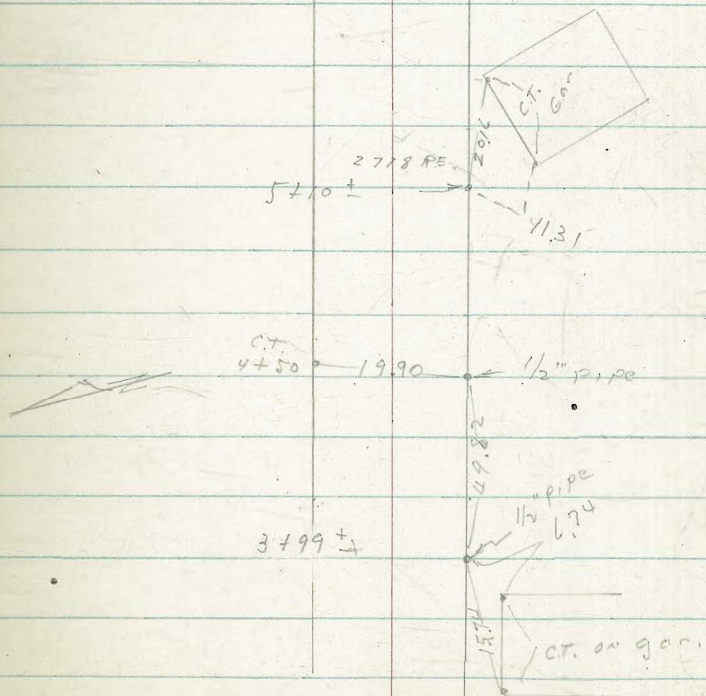 C.T.
Gar
20.16
2718 RE.
5+10 ±
41.31
C.T.
4+50
19.90
1/2" pipe
49.82
1/2" pipe
6.74
3+99 ±
15.74
C.T. on gar.